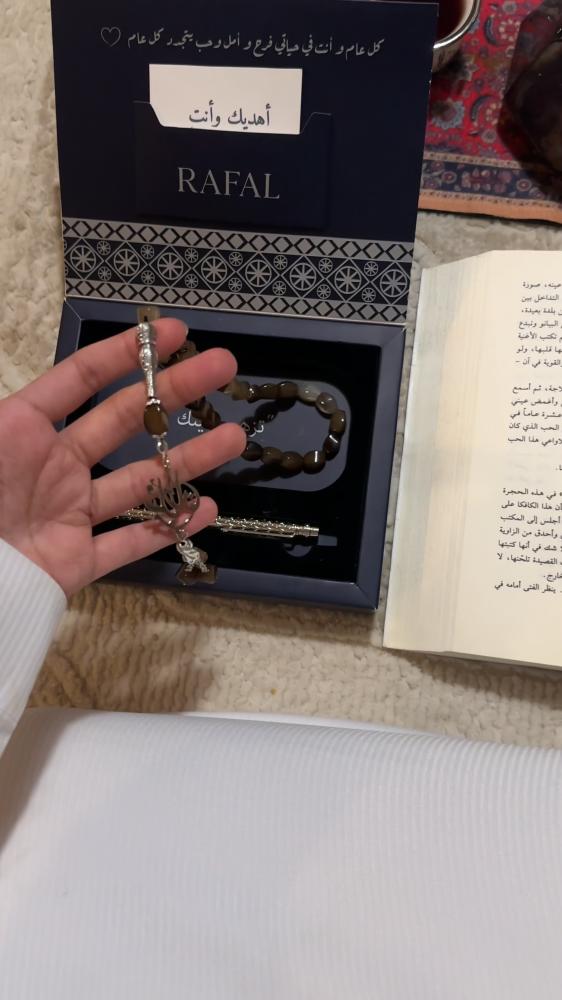 كل عام و أنت في حياتي فرح و أمل وحب يتجدد كل عام ♡
أهديك وأنتِ
RAFAL
عينه، صورة
التداخل بين
ن بلدة بعيدة،
البيانو وتبدع
م تكتب الأغنية
ها قلبها، ولو
القوية في آن -
لاجة، ثم أسمع
وأغمض عيني
عشرة عاماً في
الحب الذي كان
لاواعي هذا الحب
ه في هذه الحجرة
أن هذا الكافكا على
أجلس إلى المكتب
وأحدق من الزاوية
لا شك في أنها كتبتها
القصيدة تلحّنها، لا
خارج.
ينظر الفتى أمامه في